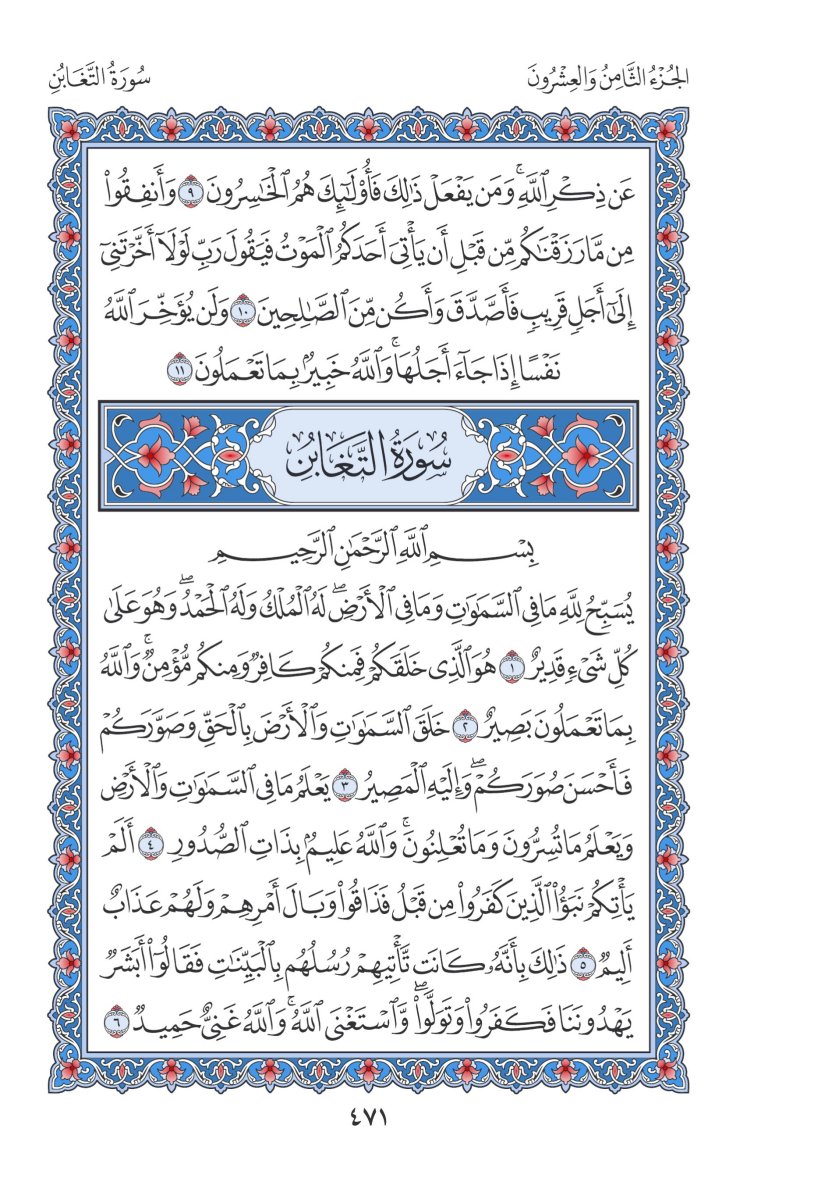 الجُزْءُ الثَّامِنُ وَالعِشْرُونَ
سُورَةُ التَّغَابُنِ
عَن ذِكْرِ ٱللَّهِۚ وَمَن يَفْعَلْ ذَٰلِكَ فَأُوْلَٰٓئِكَ هُمُ ٱلْخَٰسِرُونَ ٩ وَأَنفِقُوا۟
مِن مَّا رَزَقْنَٰكُم مِّن قَبْلِ أَن يَأْتِىَ أَحَدَكُمُ ٱلْمَوْتُ فَيَقُولَ رَبِّ لَوْلَآ أَخَّرْتَنِىٓ
إِلَىٰٓ أَجَلٍ قَرِيبٍ فَأَصَّدَّقَ وَأَكُن مِّنَ ٱلصَّٰلِحِينَ ١٠ وَلَن يُؤَخِّرَ ٱللَّهُ
نَفْسًا إِذَا جَآءَ أَجَلُهَاۚ وَٱللَّهُ خَبِيرٌۢ بِمَا تَعْمَلُونَ ١١
سُورَةُ التَّغَابُنِ
بِسْمِ ٱللَّهِ ٱلرَّحْمَٰنِ ٱلرَّحِيمِ
يُسَبِّحُ لِلَّهِ مَا فِى ٱلسَّمَٰوَٰتِ وَمَا فِى ٱلْأَرْضِۖ لَهُ ٱلْمُلْكُ وَلَهُ ٱلْحَمْدُۖ وَهُوَ عَلَىٰ
كُلِّ شَىْءٍ قَدِيرٌ ١ هُوَ ٱلَّذِى خَلَقَكُمْ فَمِنكُمْ كَافِرٌ وَمِنكُم مُّؤْمِنٌۚ وَٱللَّهُ
بِمَا تَعْمَلُونَ بَصِيرٌ ٢ خَلَقَ ٱلسَّمَٰوَٰتِ وَٱلْأَرْضَ بِٱلْحَقِّ وَصَوَّرَكُمْ
فَأَحْسَنَ صُوَرَكُمْۖ وَإِلَيْهِ ٱلْمَصِيرُ ٣ يَعْلَمُ مَا فِى ٱلسَّمَٰوَٰتِ وَٱلْأَرْضِ
وَيَعْلَمُ مَا تُسِرُّونَ وَمَا تُعْلِنُونَۚ وَٱللَّهُ عَلِيمٌۢ بِذَاتِ ٱلصُّدُورِ ٤ أَلَمْ
يَأْتِكُمْ نَبَؤُا۟ ٱلَّذِينَ كَفَرُوا۟ مِن قَبْلُ فَذَاقُوا۟ وَبَالَ أَمْرِهِمْ وَلَهُمْ عَذَابٌ
أَلِيمٌ ٥ ذَٰلِكَ بِأَنَّهُۥ كَانَت تَّأْتِيهِمْ رُسُلُهُم بِٱلْبَيِّنَٰتِ فَقَالُوٓا۟ أَبَشَرٌ
يَهْدُونَنَا فَكَفَرُوا۟ وَتَوَلَّوا۟ۖ وَّٱسْتَغْنَى ٱللَّهُۚ وَٱللَّهُ غَنِىٌّ حَمِيدٌ ٦
٤٧١